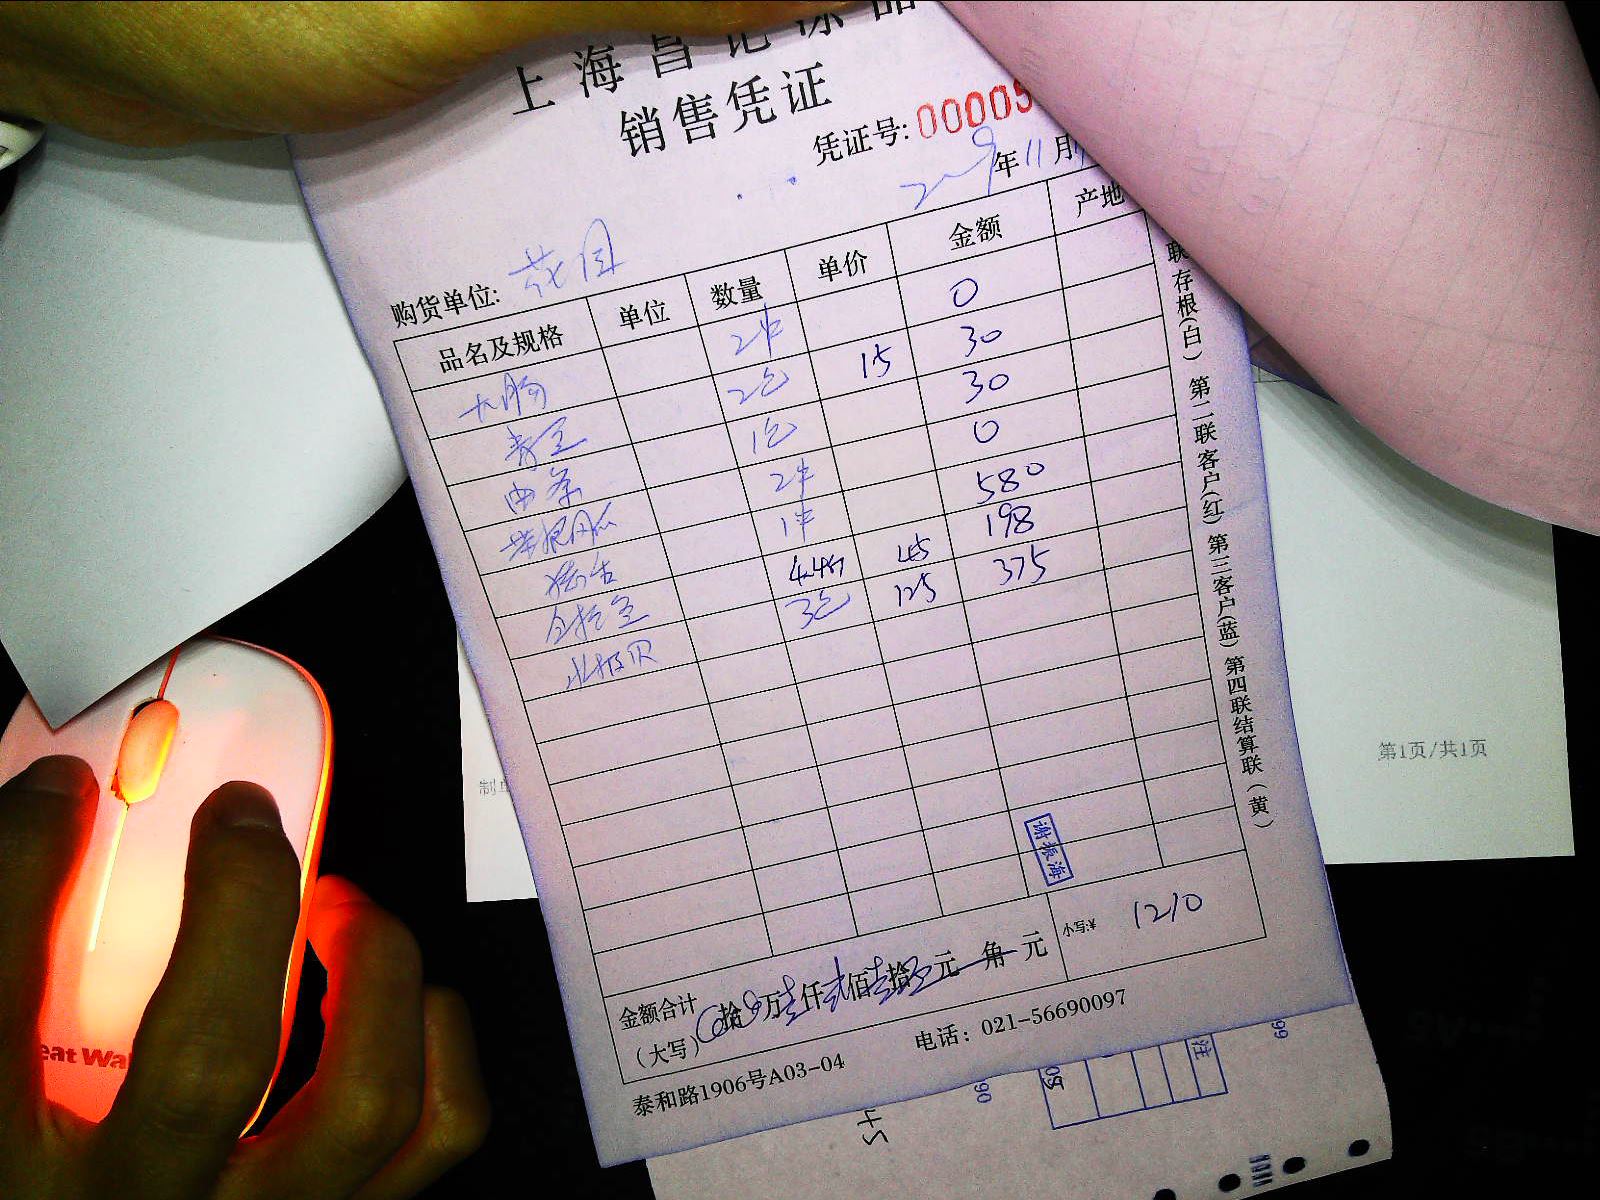 上海昌记冻品
销售凭证
凭证号: 00005
年 11 月
购货单位: 花园
品名及规格 单位 数量 单价 金额 产地
大肠 2件 0
青豆 2包 15 30
1包 30
2件 0
1件 580
4.4斤 45 198
北极贝 3包 125 375
谢振海
金额合计（大写） 拾 万 壹 仟 贰 佰 壹 拾 元 角 元 小写:¥ 1210
泰和路1906号A03-04 电话: 021-56690097
联存根(白) 第二联客户(红) 第三客户(蓝) 第四联结算联(黄)
第1页/共1页
制单
注
eat Wa